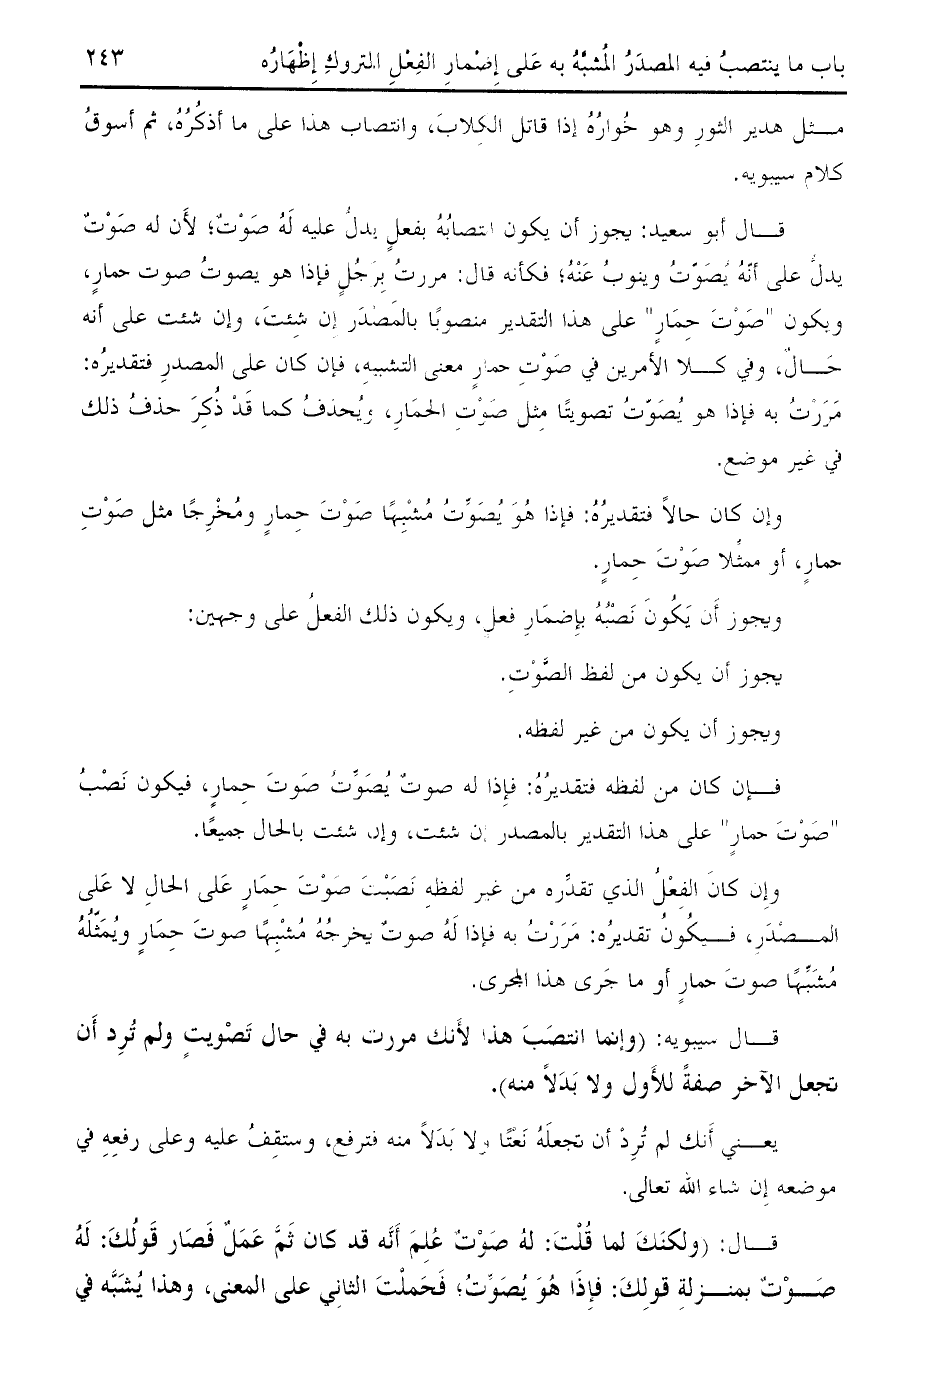 باب ما ينتصبُ فيه المصدَرُ المُشبَّهُ به عَلى إِضْمارِ الفِعْلِ المتروكِ إِظْهَارُه ٢٤٣
مــثل هدير الثورِ وهو خُوارُهُ إذا قاتل الكِلابَ، وانتصاب هذا على ما أذكُرُهُ، ثم أسوقُ
كلام سيبويه.
قــال أبو سعيد: يجوز أن يكون انتصابُهُ بفعلٍ يدلُ عليه لَهُ صَوْتٌ؛ لأن له صَوْتٌ
يدلُ على أنّهُ يُصَوّتُ وينوبُ عَنْهُ؛ فكأنه قال: مررتُ بِرَجُلٍ فإذا هو يصوتُ صوت حمارٍ،
ويكون "صَوْتَ حِمَارٍ" على هذا التقدير منصوبًا بالمَصْدَر إن شئتَ، وإن شئت على أنه
حَــالٌ، وفي كــلا الأمرين في صَوْتِ حمارٍ معنى التشبيه، فإن كان على المصدرِ فتقديرُه:
مَرَرْتُ به فإذا هو يُصَوّتُ تصويتًا مِثل صَوْتِ الحمَارِ، ويُحذفُ كما قَدْ ذُكِرَ حذفُ ذلك
في غير موضع.
وإن كان حالاً فتقديرُهُ: فإذا هُوَ يُصَوِّتُ مُشْبِهًا صَوْتَ حِمارٍ ومُخْرِجًا مثل صَوْتِ
حمارٍ، أو ممثِّلا صَوْتَ حِمارٍ.
ويجوز أَن يَكُونَ نَصْبُهُ بإِضمَارِ فعلٍ، ويكون ذلك الفعلُ على وجهين:
يجوز أن يكون من لفظ الصَّوْتِ.
ويجوز أن يكون من غير لفظه.
فــإن كان من لفظه فتقديرُهُ: فإذا له صوتٌ يُصَوِّتُ صَوتَ حِمارٍ، فيكون نَصْبُ
"صَوْتَ حمارٍ" على هذا التقدير بالمصدر إن شئت، وإن شئت بالحال جميعًا.
وإن كانَ الفِعْلُ الذي تقدِّره من غير لفظهِ نَصَبْتَ صَوْتَ حِمَارٍ عَلَى الحالِ لا عَلى
المــصْدَرِ، فــيكُونُ تقديرُه: مَرَرْتُ به فإذا لَهُ صوتٌ يخرجُهُ مُشْبِهًا صوتَ حِمَارٍ ويُمَثِّلُهُ
مُشَبِّهًا صوتَ حمارٍ أو ما جَرى هذا المجرى.
قــال سيبويه: (وإنما انتصَبَ هذا لأنك مررت به في حال تَصْويتٍ ولم تُرِد أَن
تجعل الآخر صفةً للأَول ولا بَدَلاً منه).
يعــني أَنك لم تُرِدْ أن تجعلَهُ نَعْتًا ولا بَدَلاً منه فترفع، وستقِفُ عليه وعلى رفعِهِ في
موضعه إن شاء الله تعالى.
قــال: (ولكنَكَ لما قُلْتَ: لهُ صَوْتٌ عُلِمَ أَنَّه قد كان ثَمَّ عَمَلٌ فَصَار قَولُكَ: لَهُ
صَــوْتٌ بمنــزلةِ قولِكَ: فإِذَا هُوَ يُصَوِّتُ؛ فَحَملْتَ الثاني على المعنى، وهذا يُشَبَّه في